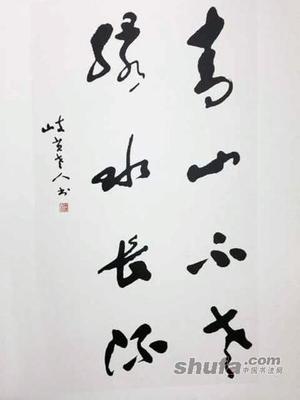 青山不老
绿水长流
岐黄老人书
shufa.com
中国书法网